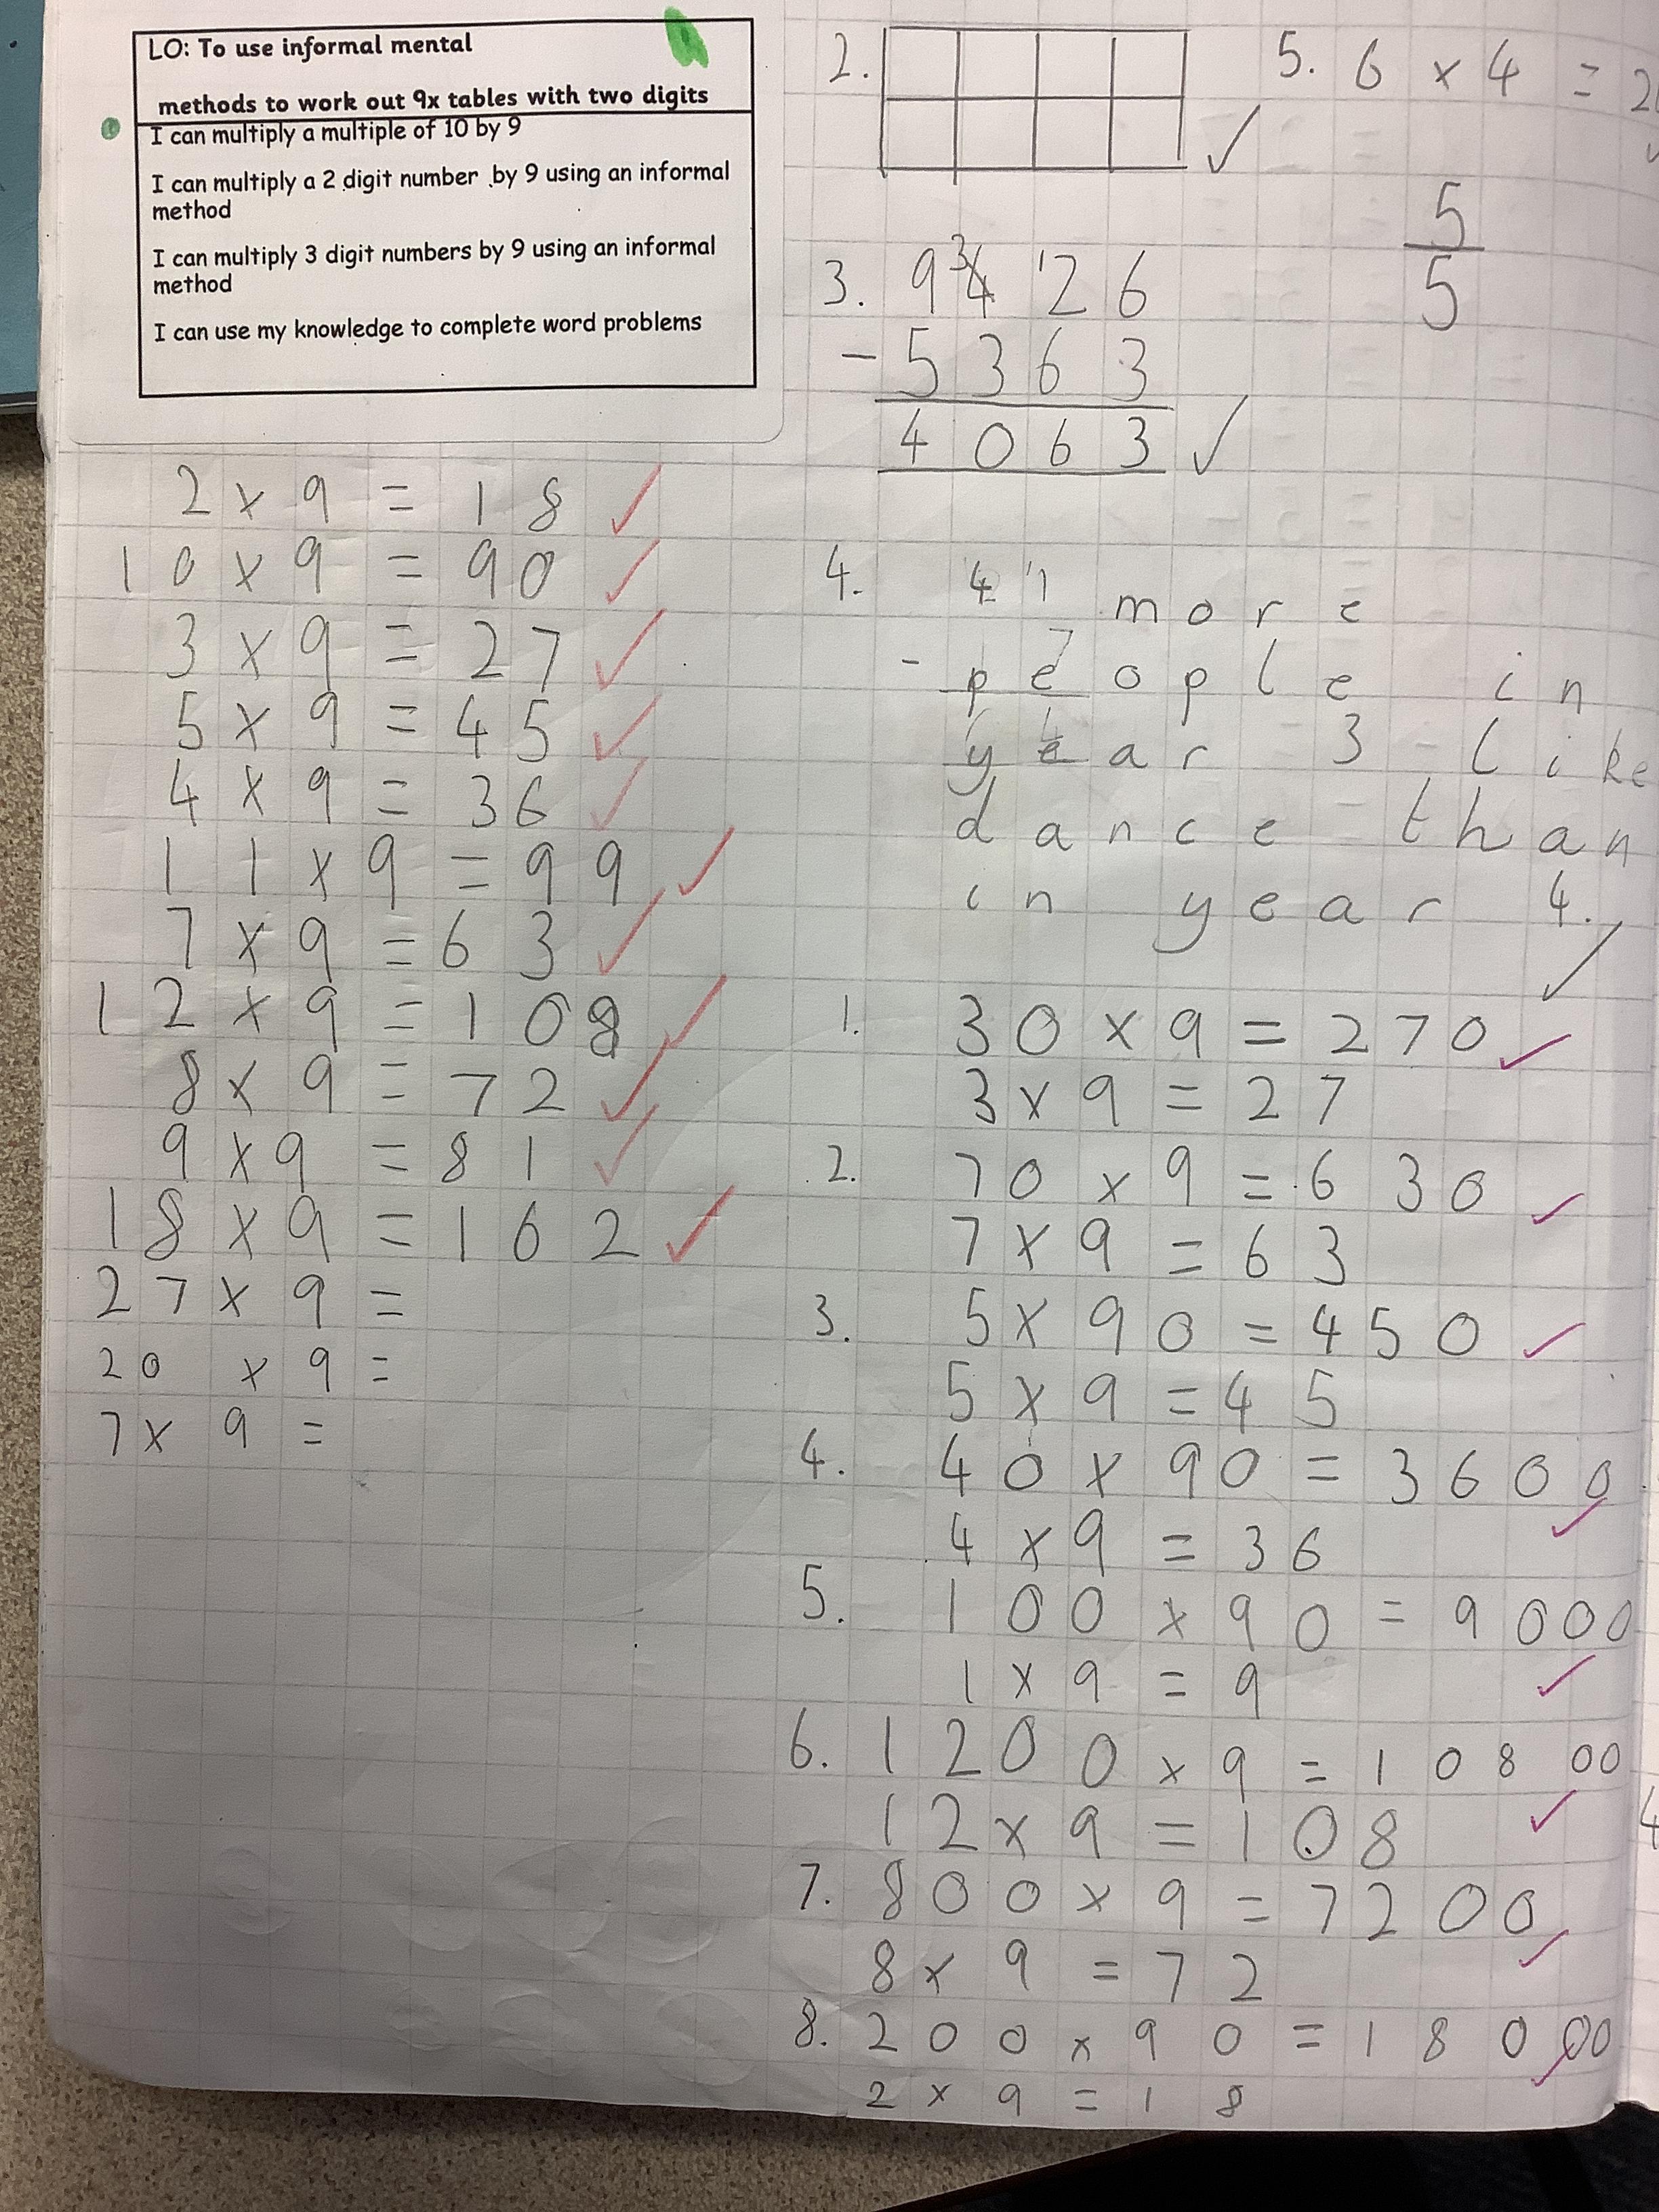 LO: To use informal mental
methods to work out 9x tables with two digits
I can multiply a multiple of 10 by 9
I can multiply a 2 digit number by 9 using an informal
method
I can multiply 3 digit numbers by 9 using an informal
method
I can use my knowledge to complete word problems
2 × 9 = 18
10 × 9 = 90
3 × 9 = 27
5 × 9 = 45
4 × 9 = 36
11 × 9 = 99
7 × 9 = 63
12 × 9 = 108
8 × 9 = 72
9 × 9 = 81
18 × 9 = 162
27 × 9 =
20 × 9 =
7 × 9 =
2.
5. 6 × 4 = 2
5
5
3. 9 4 3 1 2 6
- 5363
4063
4. 4 1 more
- people in
year 3 like
dance than
in year 4.
1. 30 × 9 = 270
3 × 9 = 27
2. 70 × 9 = 630
7 × 9 = 63
3. 5 × 90 = 450
5 × 9 = 45
4. 40 × 90 = 3600
4 × 9 = 36
5. 100 × 90 = 9000
1 × 9 = 9
6. 1200 × 9 = 10800
12 × 9 = 108
7. 800 × 9 = 7200
8 × 9 = 72
8. 200 × 90 = 18000
2 × 9 = 18